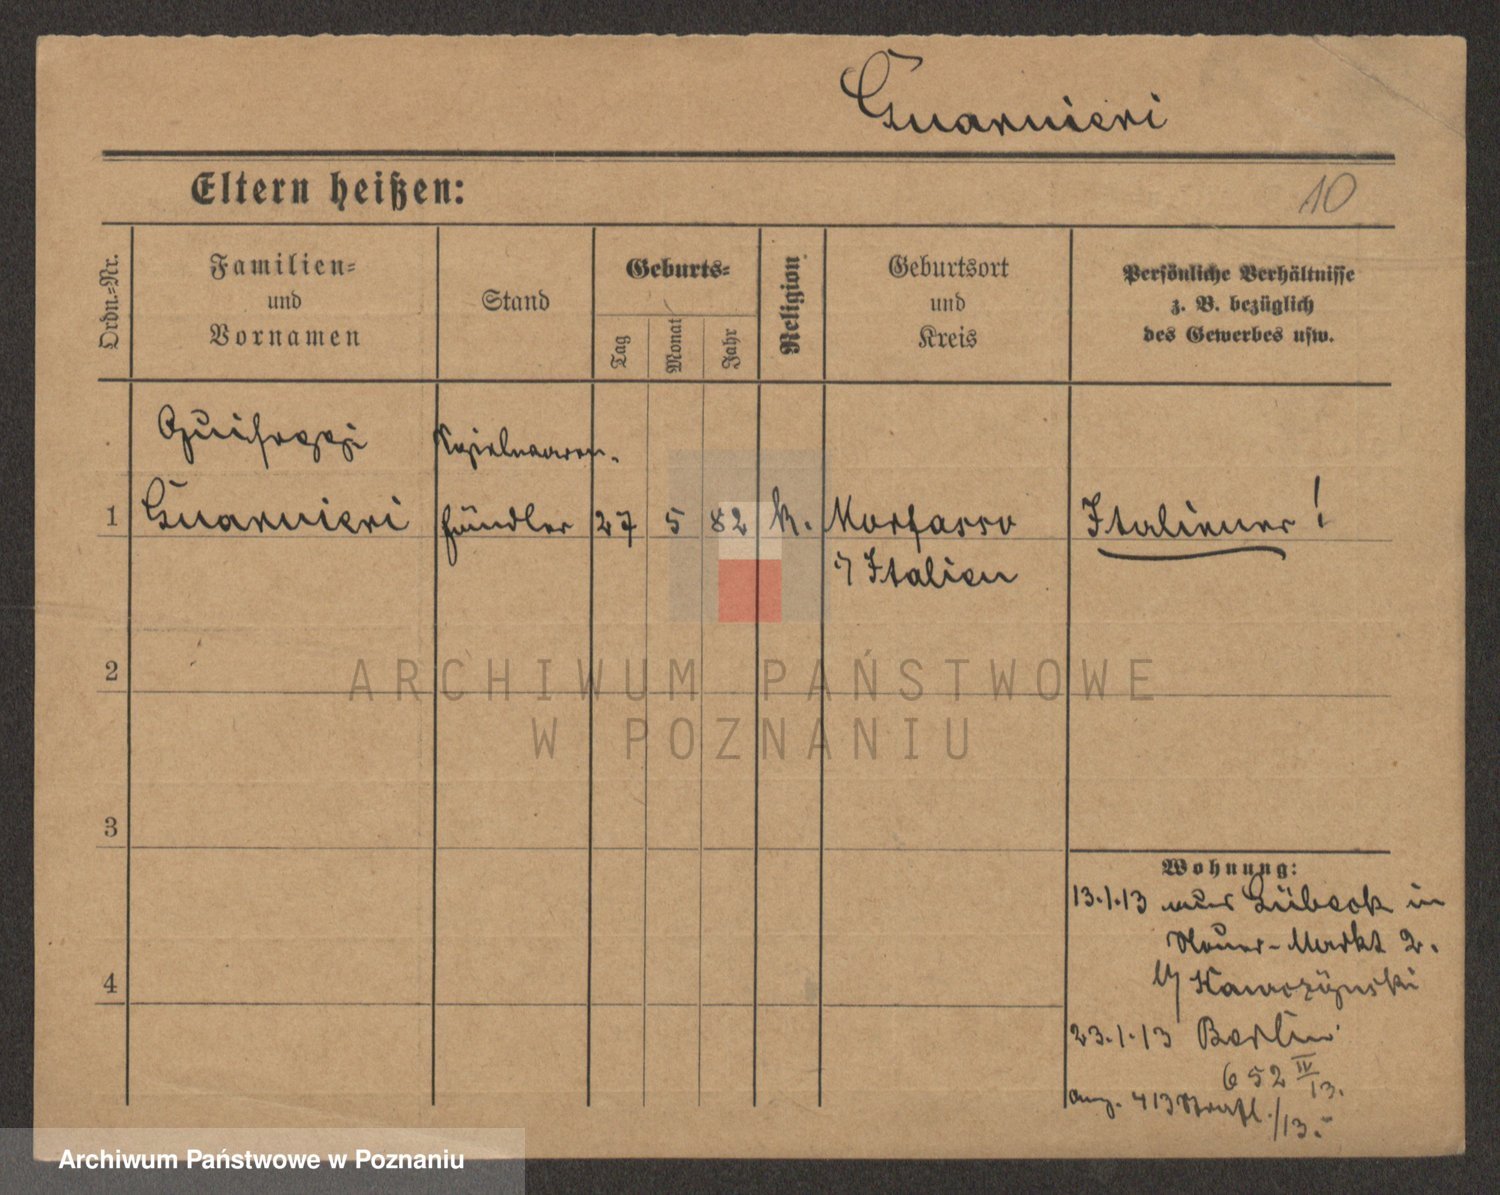 Guarnieri
Eltern heißen:
10
Ordn.-Nr.
Familien-
und
Vornamen
Stand
Geburts-
Tag
Monat
Jahr
Religion
Geburtsort
und
Kreis
Persönliche Verhältnisse
z. B. bezüglich
des Gewerbes usw.
1
Guarnieri
händler
27
5
82
k.
Morfasso
Italien
Italiener!
2
ARCHIWUM PAŃSTWOWE
W POZNANIU
3
4
Wohnung:
13.1.13 aus Lübeck in
Neuer-Markt 2.
Kawczynski
23.1.13 Berlin
652 IV/13.
Archiwum Państwowe w Poznaniu